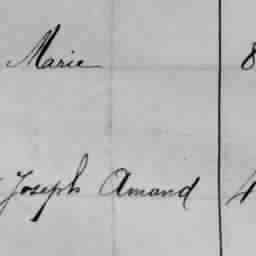 Marie 8
Joseph Amand 4